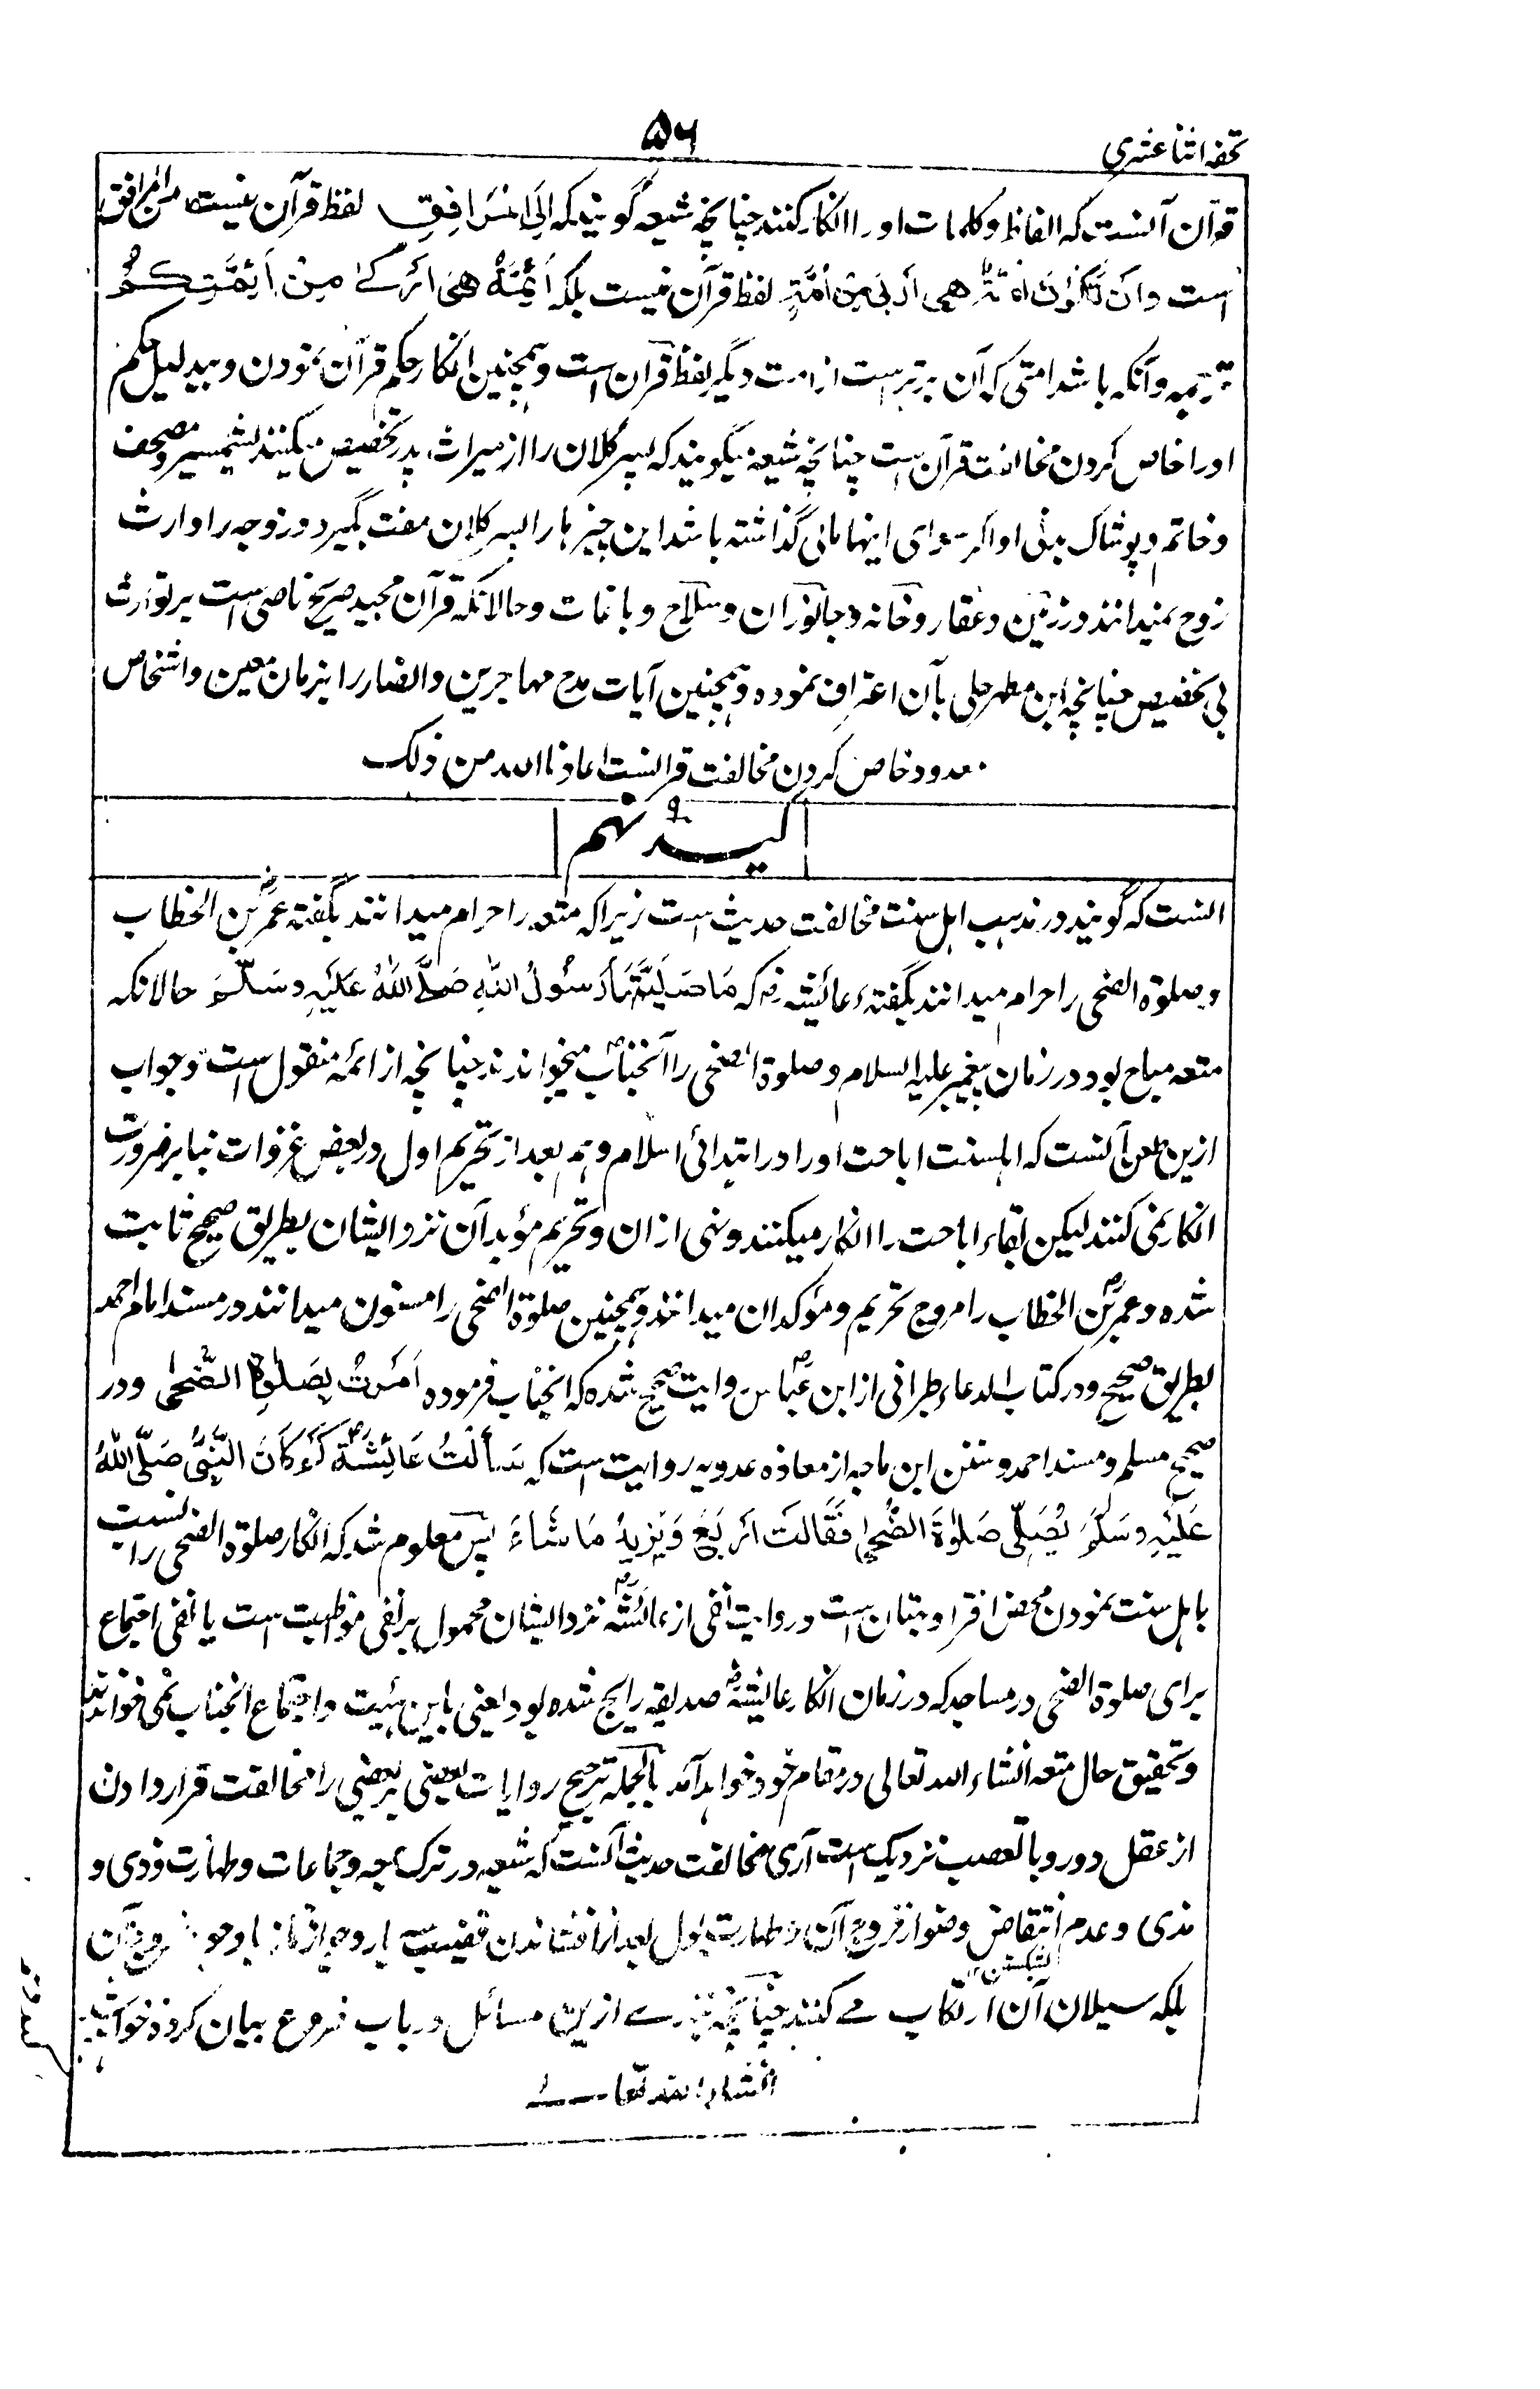 تحفه اثنا عشری
۵۶
قرآن آنست که الفاظ و کلمات او را انکار کنند چنانچه شیعه گویند که اِلَی الْمَرَافِقِ لفظ قرآن نیست من المرافق
است و اَنْ تَکُوْنَ اُمَّةٌ هِیَ اَرْبٰی مِنْ اُمَّةٍ لفظ قرآن نیست بلکه اَئِمَّةٌ هِیَ اَزْکٰے مِنْ اَئِمَّتِکُمْ
ترجمه و آنکه باشد امتی که آن برتر است از امت دیگر لفظ قرآن است و همچنین انکار حکم قرآن نمودن و بیدلیل حکم
او را خاص کردن مخالفت قرآن است چنانچه شیعه میگویند که پسر کلان را از میراث پدر تخصیص میکنند بشمشیر و مصحف
و خاتم و پوشاک بدنی او اگر سوای اینها مالی گذاشته باشد این چیزها را پسر کلان مفت بگیرد و زوجه را وارث
زوج نمیدانند در زمین و عقار و خانه و جانوران و سلاح و باغات و حالانکه قرآن مجید صریح ناص است بر توارث
بی تخصیص چنانچه ابن مطهر حلی بآن اعتراف نموده و همچنین آیات مدح مهاجرین و انصار را بزمان معین و اشخاص
معدود خاص کردن مخالفت قرآنست اعاذنا الله من ذلک
کید نهم
آنست که گویند در مذهب اهل سنت مخالفت حدیث است زیرا که متعه را حرام میدانند بگفته عمرؓ بن الخطاب
و صلوة الضحی را حرام میدانند بگفتهٔ عائشه رض که مَا صَلَّیٰهَا رَسُوْلُ اللّٰهِ صَلَّی اللّٰهُ عَلَیْهِ وَسَلَّمَ حالانکه
متعه مباح بود در زمان پیغمبر علیه السلام و صلوة الضحی را آنجناب ص میخواندند چنانچه از ائمه منقول است و جواب
ازین طعن آنست که اهلسنت اباحت او را در ابتدائی اسلام و هم بعد از تحریم اول در بعض غزوات بنا بر ضرورت
انکار نمی کنند لیکن بقاء اباحت را انکار میکنند و نهی از ان و تحریم مؤبد آن نزد ایشان بطریق صحیح ثابت
شده و عمرؓ بن الخطاب را مروج تحریم و مؤکد ان میدانند و همچنین صلوة الضحی را مسنون میدانند در مسند امام احمد
بطریق صحیح و در کتاب الدعاء طبرانی از ابن عباسؓ روایت صحیح شده که آنجناب فرموده اُمِرْتُ بِصَلٰوةِ الضُّحٰی و در
صحیح مسلم و مسند احمد و سنن ابن ماجه از معاذه عدویه روایت است که سَأَلْتُ عَائِشَةَ کَمْ کَانَ النَّبِیُّ صَلَّی اللّٰهُ
عَلَیْهِ وَسَلَّمَ یُصَلِّی صَلٰوةَ الضُّحٰی فَقَالَتْ اَرْبَعَ وَیَزِیْدُ مَا شَاءَ پس معلوم شد که انکار صلوة الضحی را نسبت
باهل سنت نمودن محض افترا و بهتان است و روایت نفی از عائشهؓ نزد ایشان محمول بر نفی مواظبت است یا نفی اجتماع
برای صلوة الضحی در مساجد که در زمان انکار عائشهؓ صدیقه رایج شده بود یعنی باین هیئت و اجتماع آنجناب نمی خواندند
و تحقیق حال متعه انشاء الله تعالی در مقام خود خواهد آمد بالجمله ترجیح روایات بعضی بر بعضی را مخالفت قرار دادن
از عقل دور و با تعصب نزدیک است آری مخالفت حدیث آنست که شیعه در ترک جمعه و جماعات و طهارت ودی و
مذی و عدم انتقاض وضو از خروج آن و طهارت بول بعد از افشاندن قضیب
بلکه سیلان آن ارتکاب مے کنند چنانچه از ین مسائل در باب فروع بیان کرده خواهد
انشاء الله تعالے